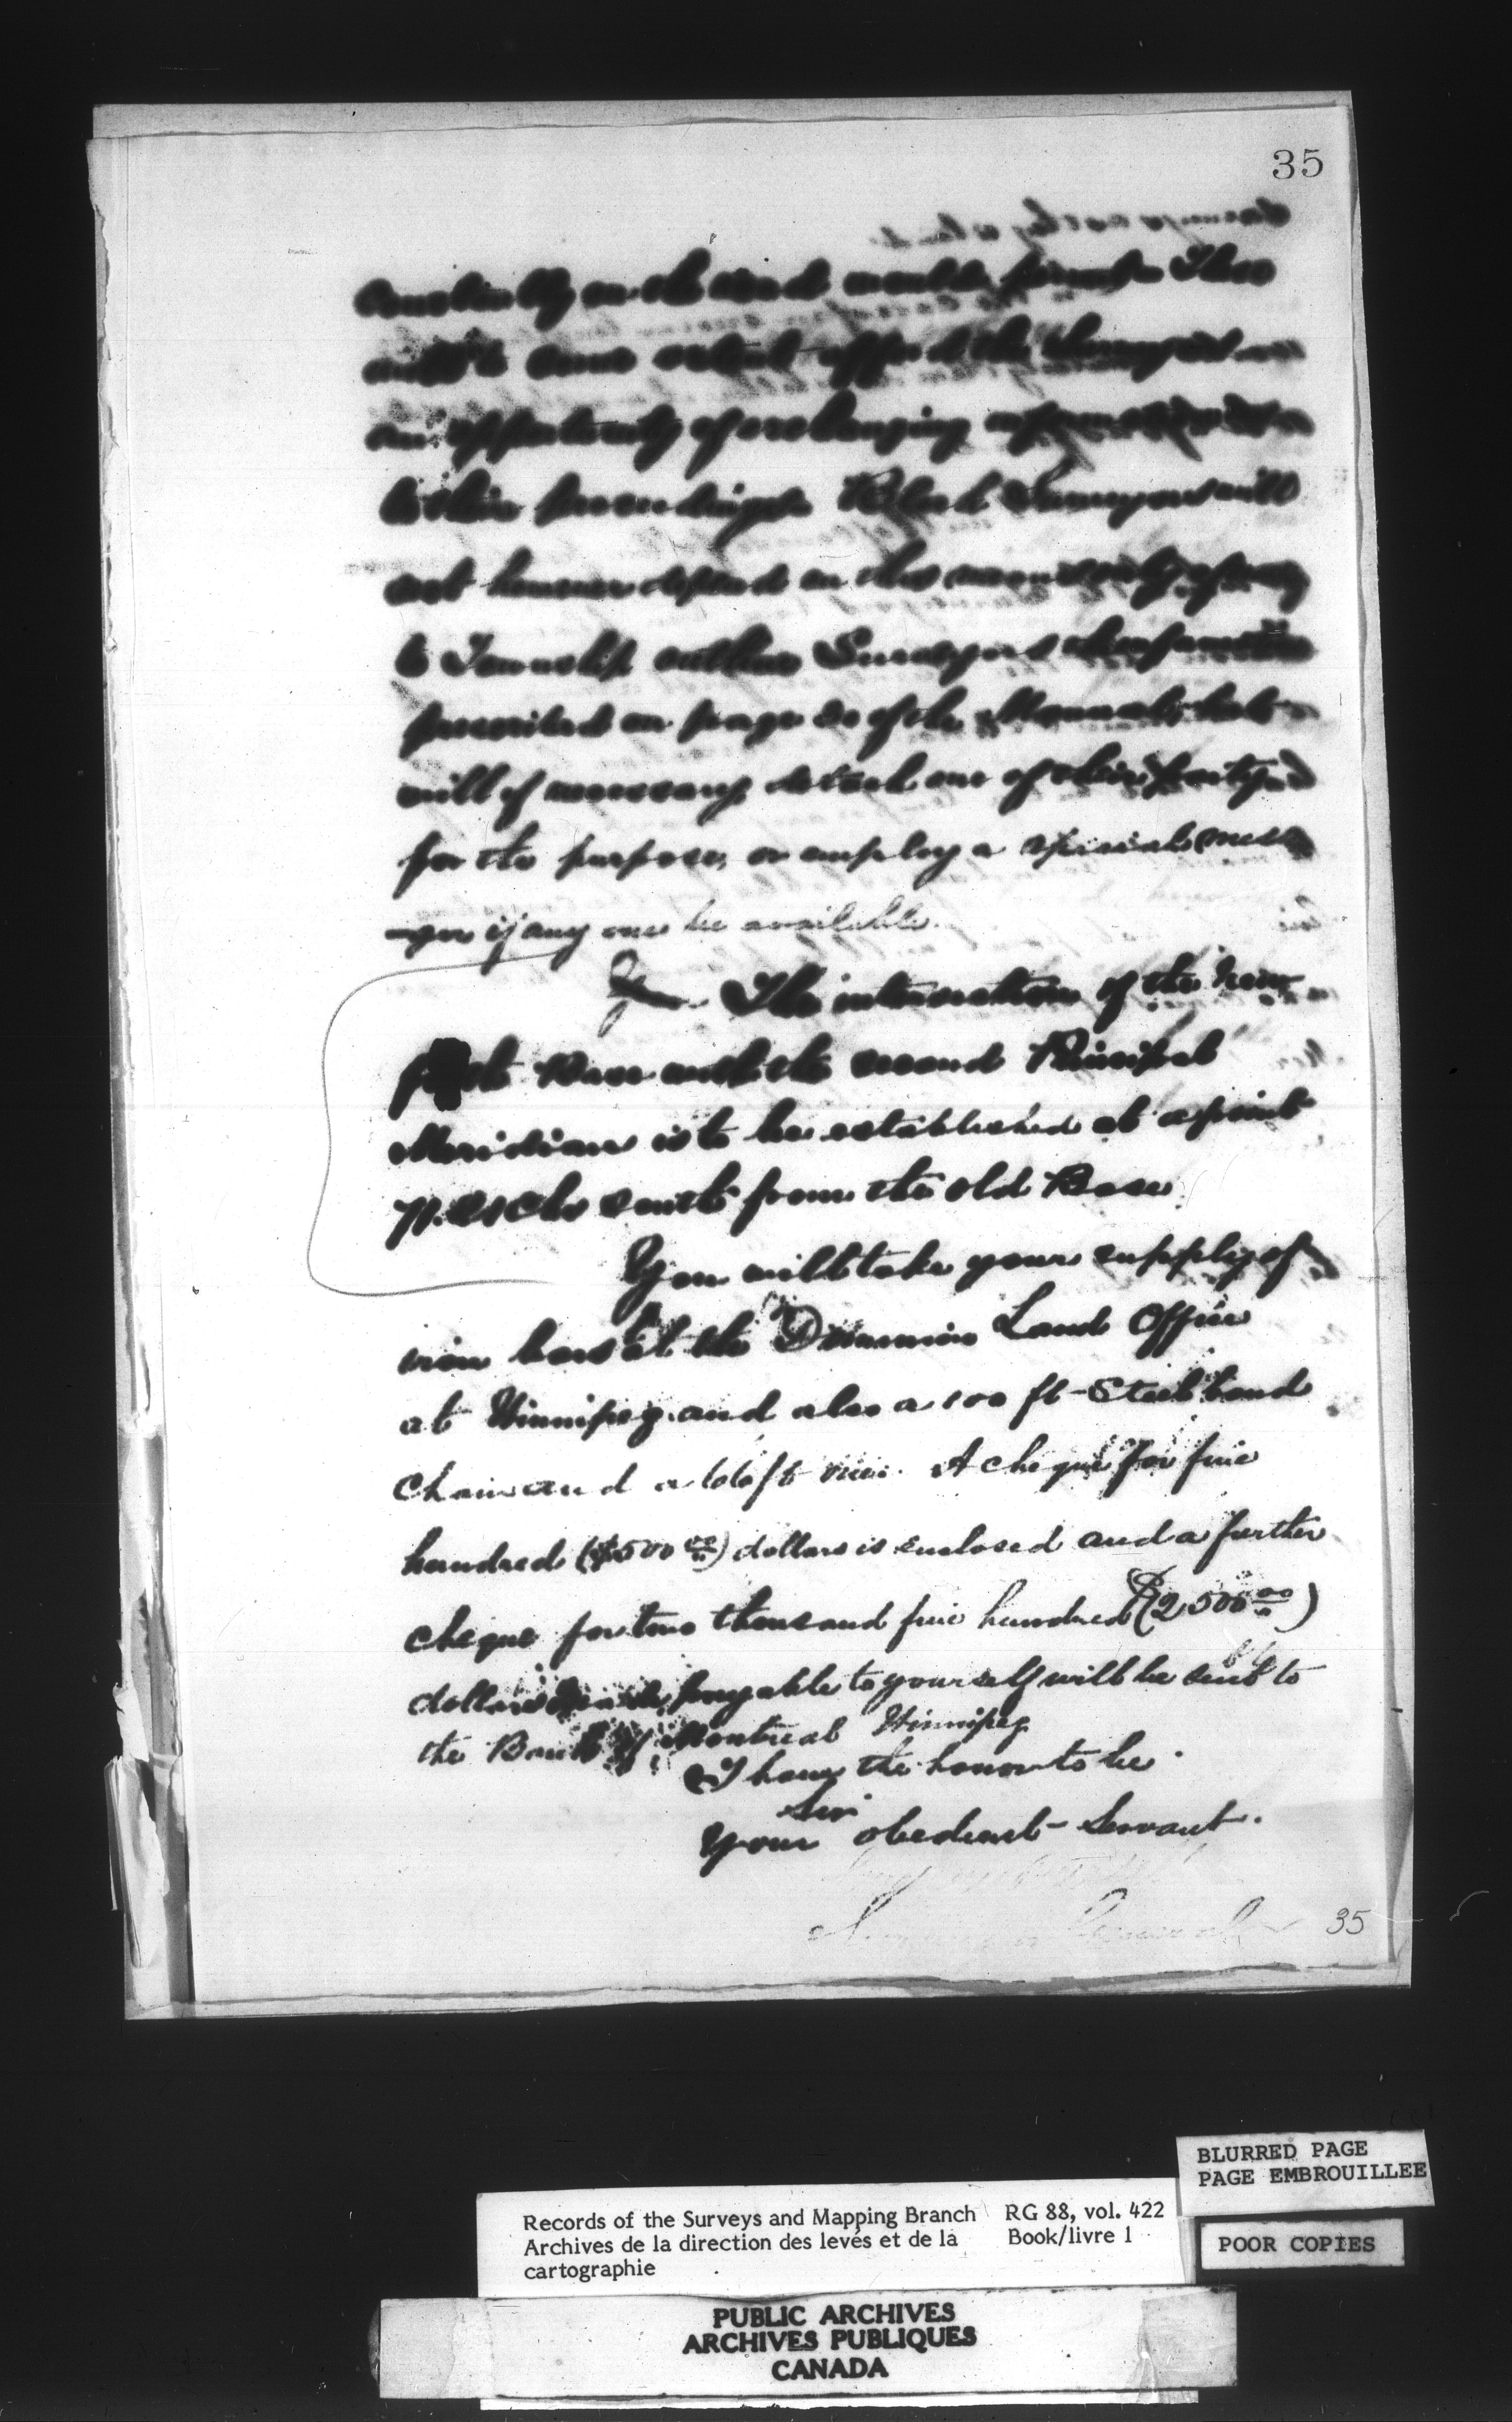 35
constantly on the road would
will to some extent afford the Surveyors
an opportunity of exchanging information as
to their proceedings. Block Surveyors will
not however depend on this means only of
to Township outline Surveyors the
on page 20 of the Manual, but
will if necessary detach one of their party
for the purpose, or employ a special messen
-ger if any one be available.
The intersection of the new
first Base with the second Principal
Meridian is to be established at a point
chs south from the old Base.
You will take your supply of
iron bars at the Dominion Lands Office
at Winnipeg and also a 100 ft Steel band
chain and a 66 ft A cheque for five
hundred ($500 00) dollars is enclosed and a further
cheque for two thousand five hundred ($2500 00)
dollars made payable to yourself will be sent to
the Bank of Montreal Winnipeg
I have the honor to be
Sir
Your obedient Servant.
Surveyor General
35
BLURRED PAGE
PAGE EMBROUILLEE
Records of the Surveys and Mapping Branch RG 88, vol. 422
Archives de la direction des levés et de la Book/livre 1
cartographie
POOR COPIES
PUBLIC ARCHIVES
ARCHIVES PUBLIQUES
CANADA